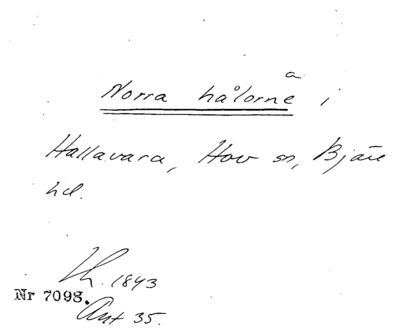 a
Norra hålorne i
Hallavara, Hov sn, Bjäre
hd.
Th. 1843
Nr 7098.
Ant 35.